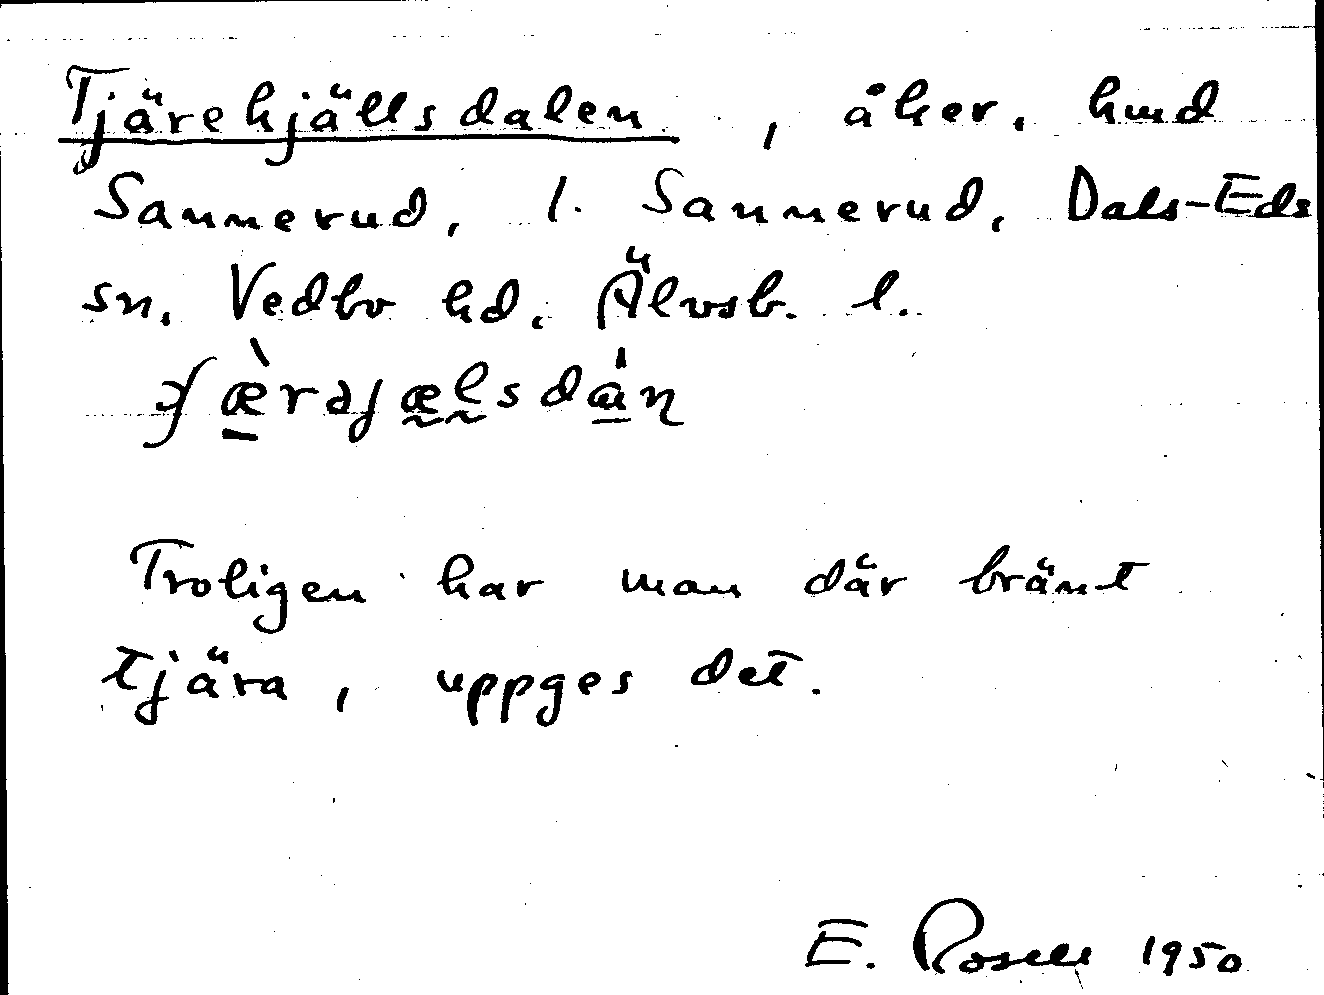 Tjärehjällsdalen, åker, hmd
Sannerud, 1. Sannerud, Dals-Eds
sn, Vedbo hd, Älvsb. l.
Troligen har man där bränt
tjära, uppges det.
E. Rosell 1950